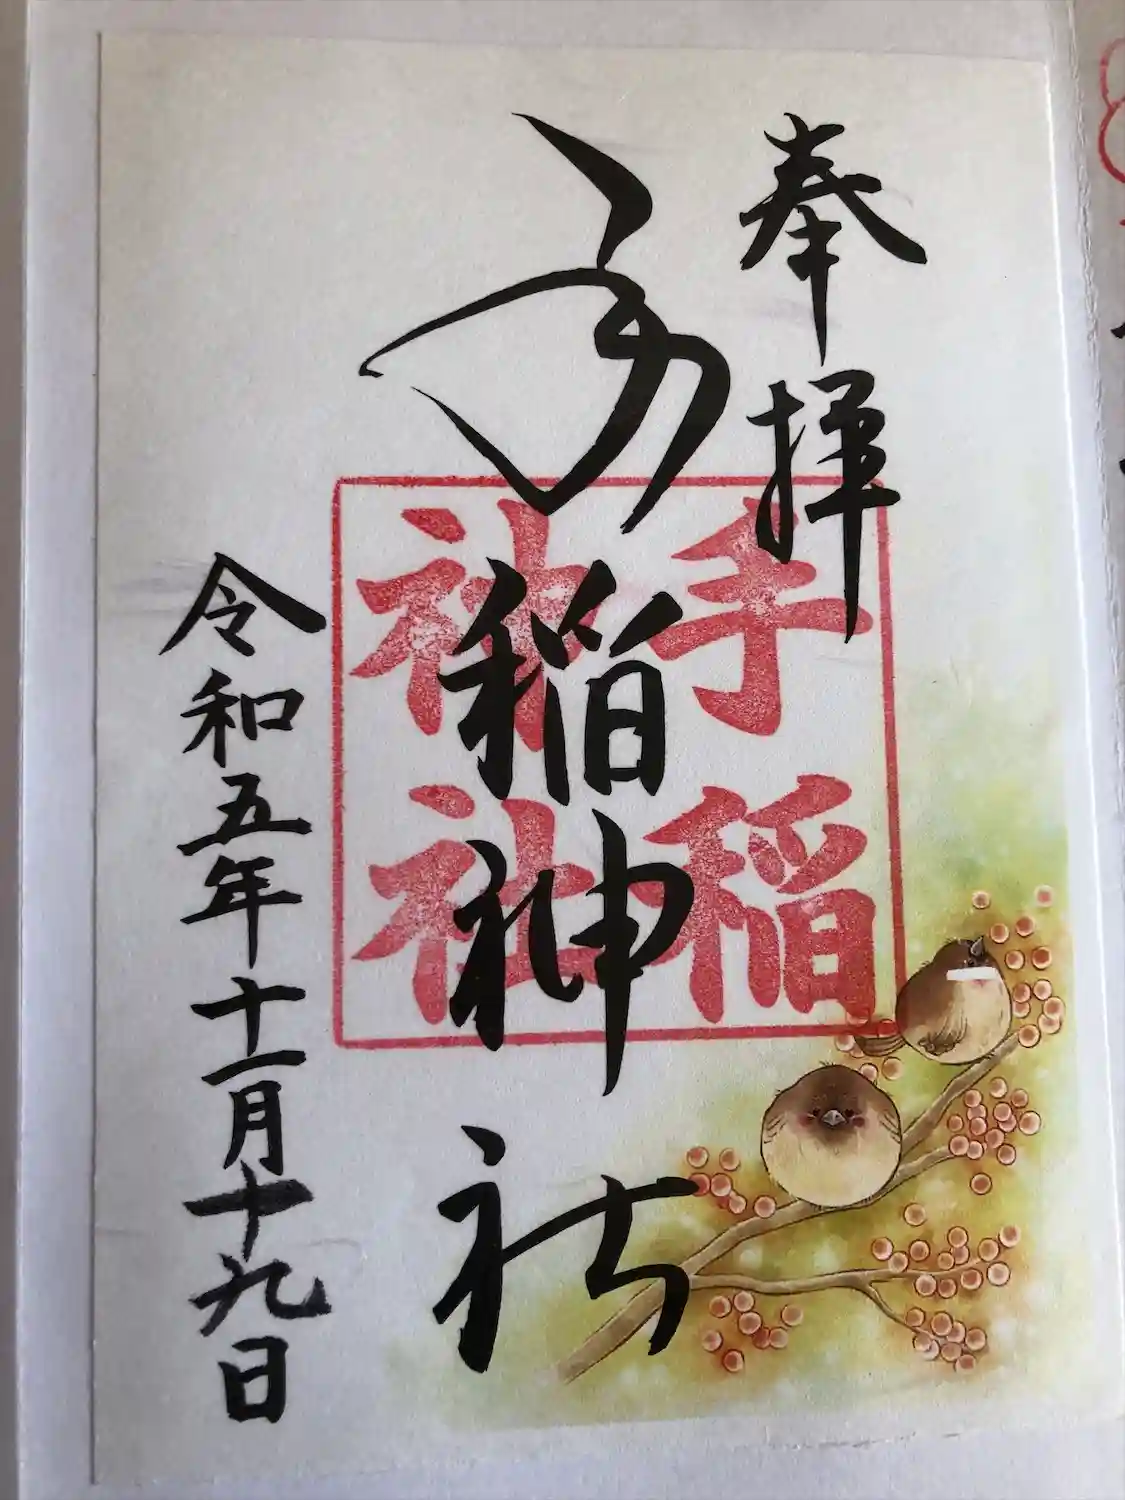 奉拝
手稲神社
手稲
神社
令和五年十一月十九日